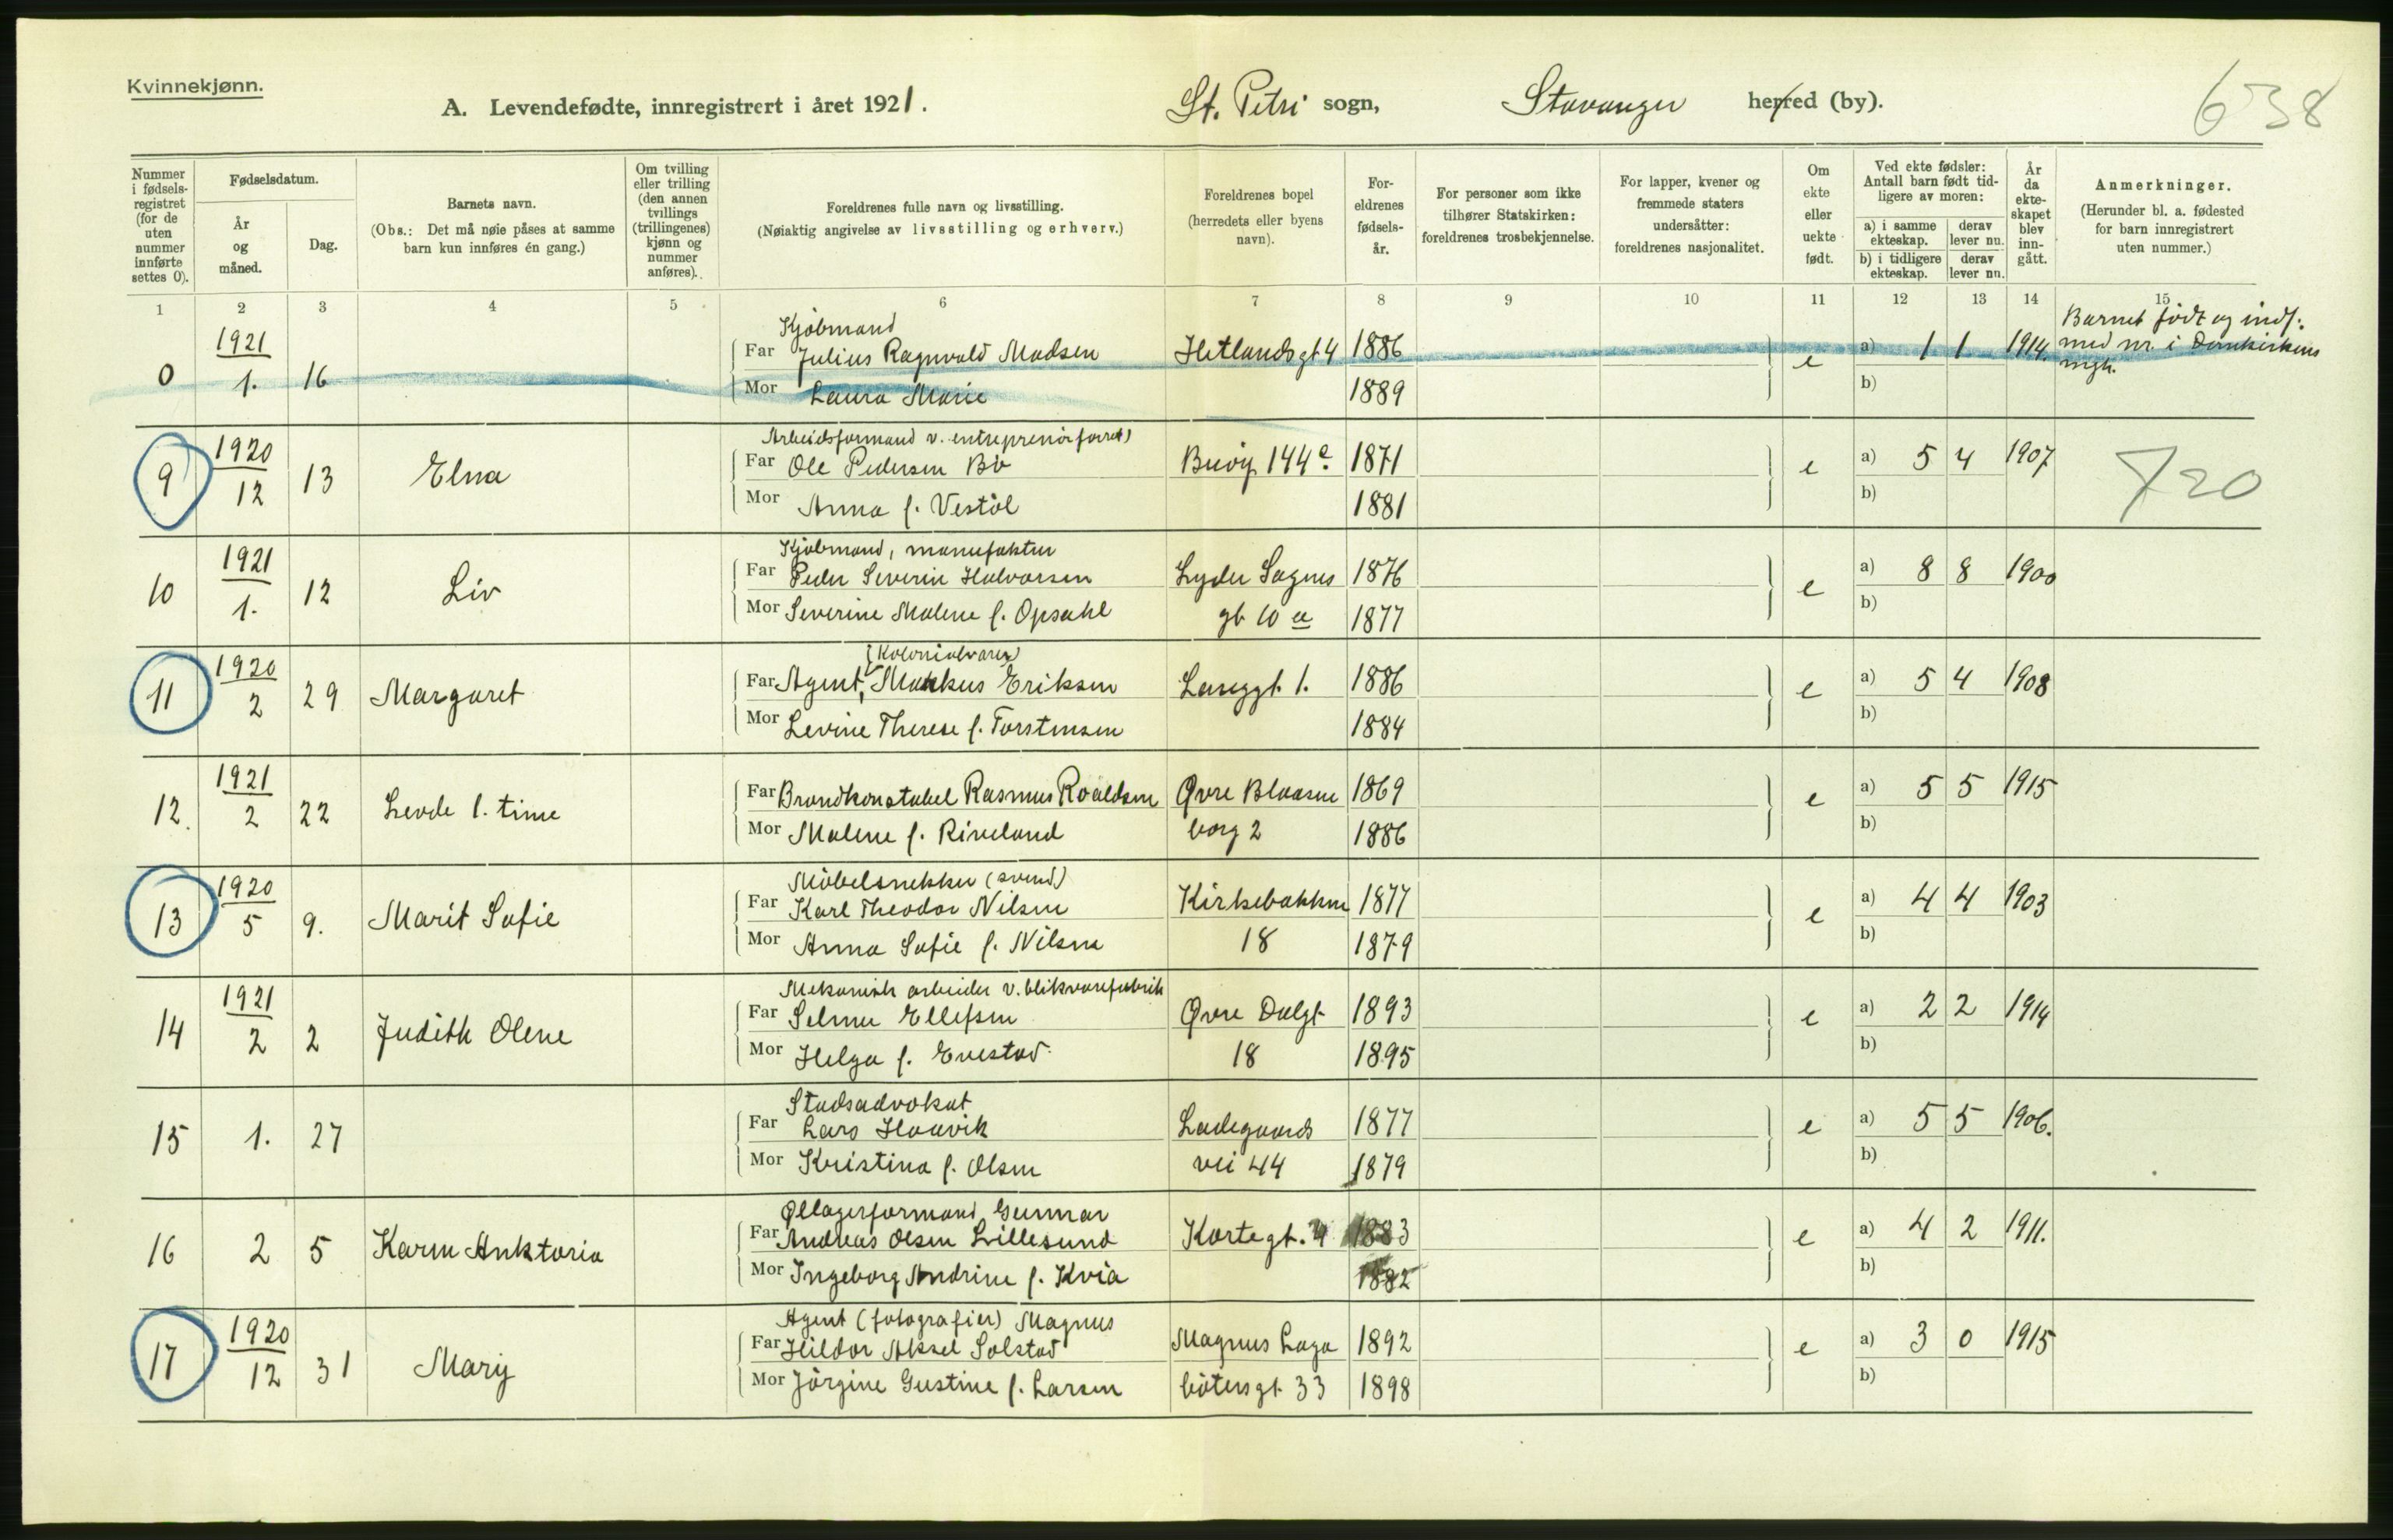 Kvinnekjønn.
A. Levendefødte, innregistrert i året 1921. St. Petri sogn, Stavanger herred (by).
638
Nummer i fødselsregistret (for de uten nummer innførte settes 0).
Fødselsdatum.
År og måned.
Dag.
Barnets navn.
(Obs.: Det må nøie påses at samme barn kun innføres én gang.)
Om tvilling eller trilling (den annen tvillings (trillingenes) kjønn og nummer anføres).
Foreldrenes fulle navn og livsstilling.
(Nøiaktig angivelse av livsstilling og erhverv.)
Foreldrenes bopel (herredets eller byens navn).
Foreldrenes fødselsår.
For personer som ikke tilhører Statskirken: foreldrenes trosbekjennelse.
For lapper, kvener og fremmede staters undersåtter: foreldrenes nasjonalitet.
Om ekte eller uekte født.
Ved ekte fødsler: Antall barn født tidligere av moren:
a) i samme ekteskap. derav lever nu.
b) i tidligere ekteskap. derav lever nu.
År da ekteskapet blev inngått.
Anmerkninger.
(Herunder bl. a. fødested for barn innregistrert uten nummer.)
1 2 3 4 5 6 7 8 9 10 11 12 13 14 15
Kjøbmand
0 1921 1. 16 Far Julius Ragnvald Madsen Hetlandsgt 4 1886 e a) 1 1 1914 Barnet født og indf. med nr. i Domkirkens
Mor Laura Marie 1889 b)
Arbeidsformand v. entreprenørforret)
9 1920 12 13 Elna Far Ole Pedersen Bø Buøy 144e. 1871 e a) 5 4 1907 720
Mor Anna f. Vestøl 1881 b)
Kjøbmand, manufaktur
10 1921 1. 12 Liv Far Peder Severin Halvorsen Lyder Sagens 1876 e a) 8 8 1900
Mor Severine Malene f. Opsahl gt 10 a 1877 b)
(Kolonialvarer)
11 1920 2 29 Margaret Far Agent, Markus Eriksen 1886 e a) 5 4 1908
Mor Levine Therese f. Torstensen 1884 b)
12. 1921 2 22 Levde 1. time Far Brandkonstabel Rasmus Roaldsen Øvre Blaasen 1869 e a) 5 5 1915
Mor Malene f. Riveland borg 2 1886 b)
Møbelsnekker (svend)
13 1920 5 9. Marit Sofie Far Karl Theodor Nilsen Kirkebakken 1877 e a) 4 4 1903
Mor Anna Sofie f. Nilsen 18 1879 b)
Mekanisk arbeider v. blikvarefabrik
14 1921 2 2 Judith Olene Far Selmer Ellefsen Øvre Dalgt 1893 e a) 2 2 1914
Mor Helga f. Evestad. 18 1895 b)
Stadsadvokat
15 1. 27 Far Lars Haavik Ladegaards 1877 e a) 5 5 1906.
Mor Kristina f. Olsen vei 44 1879 b)
Øllagerformand Gunnar
16 2 5 Karen Anktoria Far Andreas Olsen Lillesund Kortegt. 4 1883 e a) 4 2 1911.
Mor Ingeborg Andrine f. Kvia 1882 b)
Agent (fotografier) Magnus
17 1920 12 31 Mary Far Hildor Aksel Solstad Magnus Laga 1892 e a) 3 0 1915
Mor Jørgine Gustine f. Larsen bøtersgt 33 1898 b)